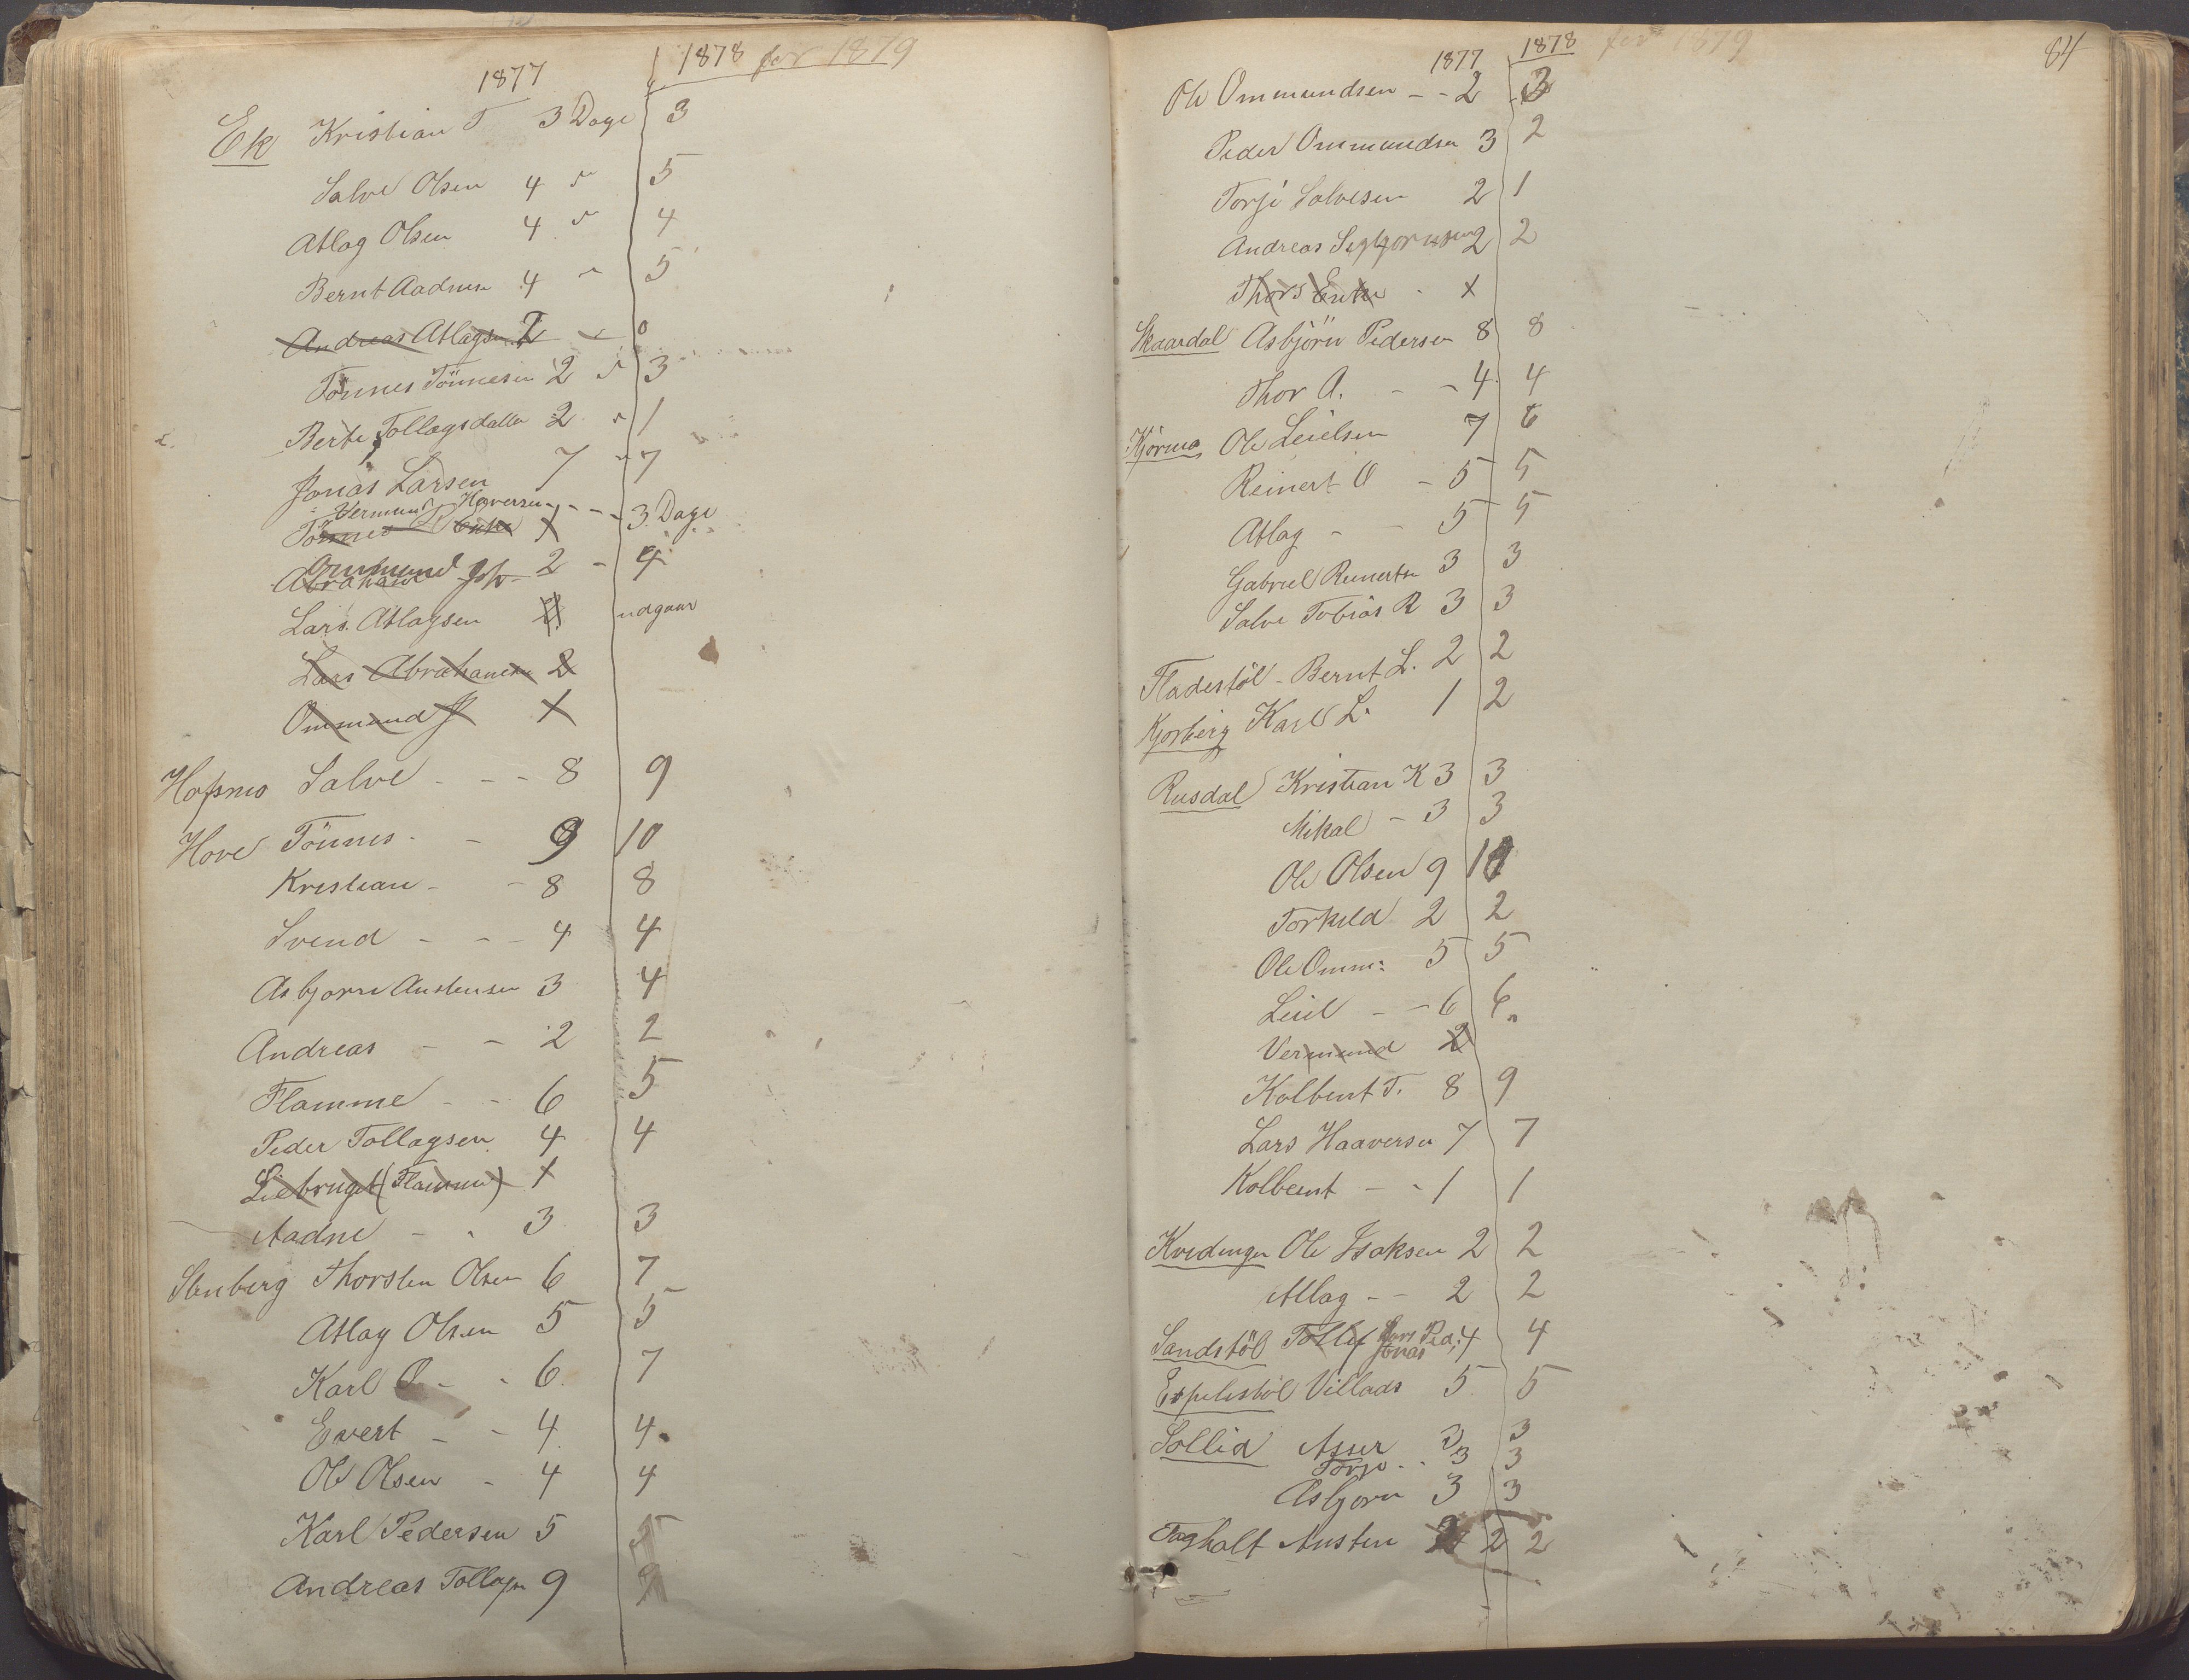 1877 1878 for 1879
Ek Kristian T 3 Dage 3
Salve Olsen 4 " 5
Atlag Olsen 4 " 4
Bernt Aadnesen 4 " 5
Andreas Atlagsen 2 0
Tönnes Tönnesen 2 " 3
Berte Tollagsdatter 2 " 1
Jonas Larsen 7 " 7
Vermund Haversen - - - 3 Dage
Tönnes Enke 1
Ommund
Abraham 2 - 4
Lars Atlagsen udgaar
Lars Abrahamsen 2
Ommund J 1
Hofsmo Salve - - - 8 9
Hove Tönnes - - 9 10
Kristian - - 8 8
Svend - - - 4 4
Asbjorn Austensen 3 4
Andreas - - 2 2
Flamme - - 6 5
Peder Tollagsen 4 4
Liebruget (Flamme) 1
Aadne - - 3 3
Stenberg Thorsten Olsen 6 7
Atlag Olsen 5 5
Karl O - - 6 7
Evert - - 4 4
Ole Olsen - 4 4
Karl Pedersen 5 5
Andreas Tollagsen 9 9
84
1877 1878 for 1879
Ole Ommundsen - - 2 3
Peder Ommundsen 3 2
Torje Salvesen 2 1
Andreas Sigbjornsen 2 2
Thors Enke - 1
Skaardal Asbjörn Pedersen 8 8
Thor A. - - 4 4
Kjörmo Ole Leielsen 7 6
Reinert O - 5 5
Atlag - - 5 5
Gabriel Reinertsen 3 3
Salve Tobias R 3 3
Fladestöl - Bernt L. 2 2
Kjorberg Karl L. 1 2
Rusdal Kristian K 3 3
Mikal - 3 3
Ole Olsen 9 10
Torkild 2 2
Ole Omm: 5 5
Leiel - - 6 6
Vermund 2
Kolbent T. 8 9
Lars Haaversen 7 7
Kolbent - - 1 1
Kvedingen Ole Isaksen 2 2
Atlag - - 2 2
Sandstöl Tollef Lars Ped: 4 4
Jonas
Espelistöl Villads 5 5
Sollid Asser 3 3
Torje - - 3 3
Asbjorn 3 3
Austen 2 2